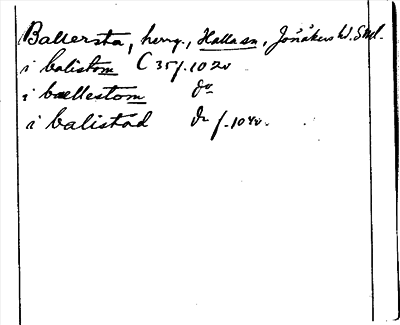 Ballersta, herrg., Halla sn, Jönåkers hd. Sml.
i balistom C 35 f. 102v
i bællestom do
i balistad do f. 104v.